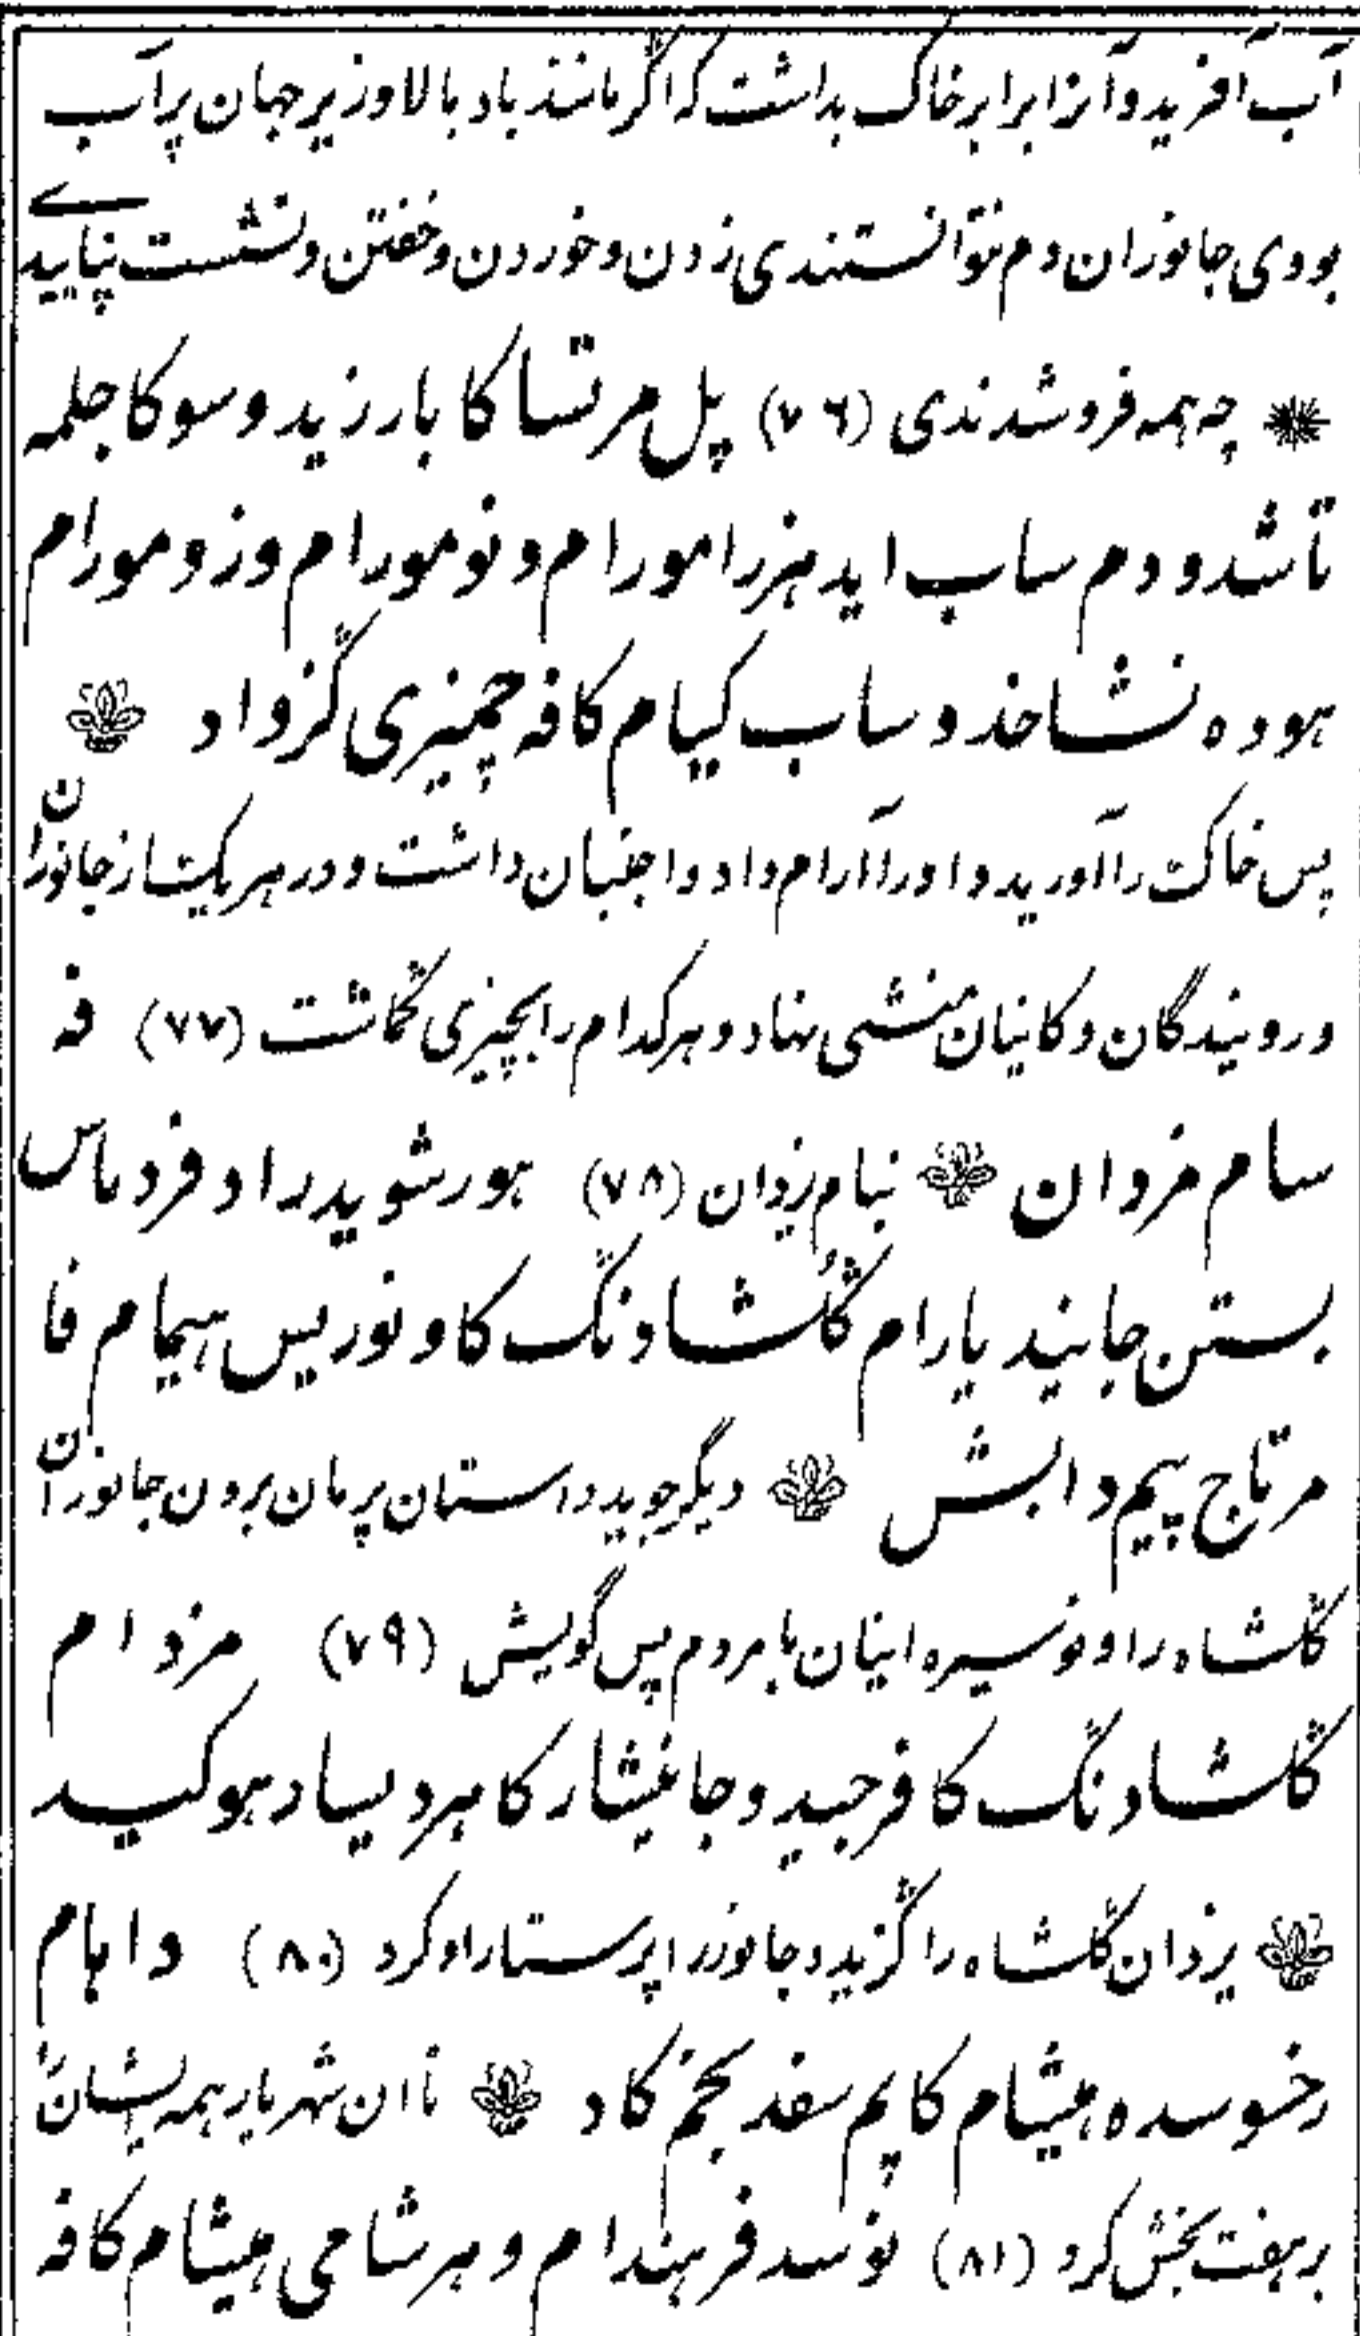 آب آفرید و آنرا برابر خاک بداشت که اگر مانند باد بالا و زیر جهان پر آب
بودی جانوران دم نتوانستندی زدن و خوردن و خفتن و نشست نپاییدے
چه همه فروشدندی (۷۶) پل مرتسا کا بارزید و سوکا جلمه
تاشد و دم ساب اید هزرامورام و نومورام وزومورام
هوده نشاخذ و ساب کیام کافه چمیزی گزواد
پس خاک را آورید و اورا آرام داد و اجنبان داشت و در هر یکتا از جانوران
و رویندگان و کانیان منشی نهاد و هر کدام را بچیزی گماشت (۷۷) فه
سام مزدان بنام یزدان (۷۸) هورشوید راد فرذماس
بستن جانیدیارام گلشاونگ کا و نوریس هیجام فا
مرتاج پیم دابش دیگر جوید داستان پرمان بردن جانوران
گلشاه را و نوسیره اینان با مردم پس گویش (۷۹) مزدام
گلشادنگ کا فرجید و جاغیشار کا هردیساد هوکید
یزدان گلشاه را گزید و جانور را پرستار او کرد (۸۰) و اهام
رخوسده هیشام کا پم سفد بخم کاد تا ان شهریار همه ایشانرا
بر هفت بخش کرد (۸۱) نوسد فرهندام و هرشاحی هیشام کافه